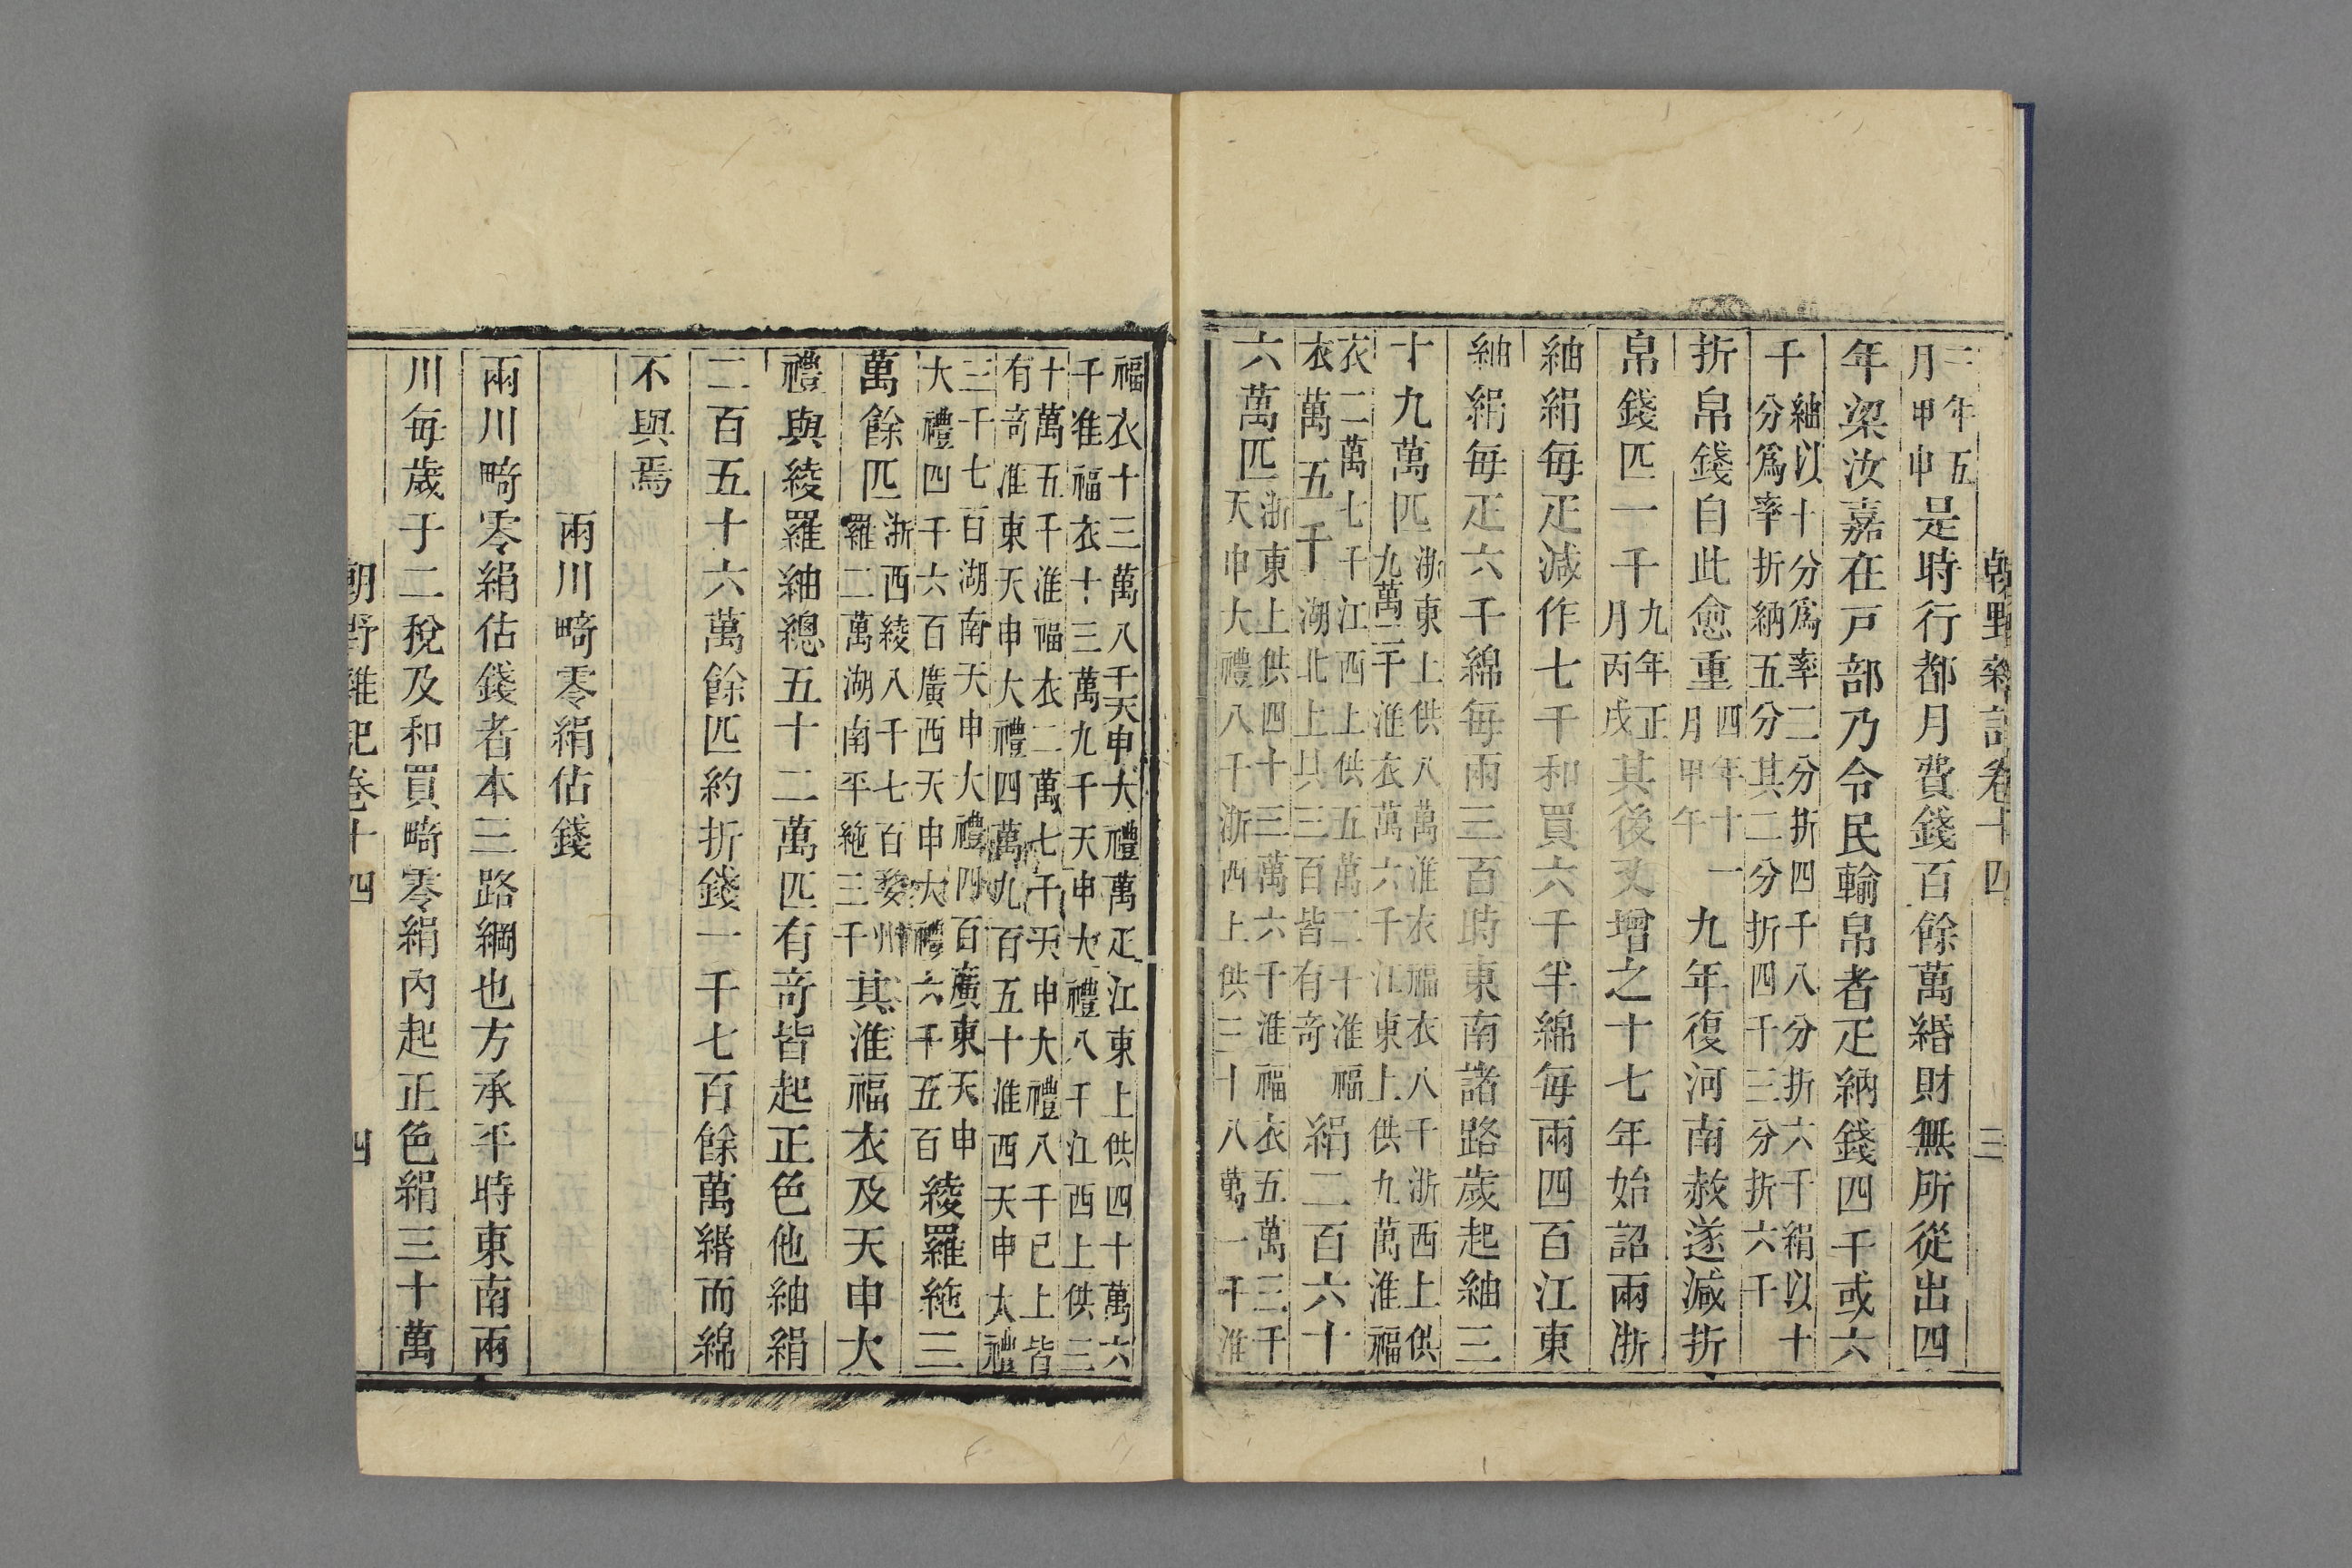 朝野雜記卷十四　三
三年五
月甲申
是時行都月費錢百餘萬緡財無所從出四
年梁汝嘉在戸部乃令民輸帛者疋納錢四千或六
千
紬以十分爲率二分折四千八分折六千絹以十
分爲率折納五分其二分折四千三分折六千
折帛錢自此愈重
四年十一
月甲午
九年復河南赦遂減折
帛錢匹一千
九年正
月丙戌
其後又增之十七年始詔兩浙
紬絹每疋減作七千和買六千半綿每兩四百江東
紬絹每疋六千綿每兩三百時東南諸路歲起紬三
十九萬匹
浙東上供八萬淮衣福衣八千浙西上供
九萬二千淮衣萬六千江東上供九萬淮福
衣二萬七千江西上供五萬二千淮福
衣萬五千湖北上共三百皆有奇
絹二百六十
六萬匹
浙東上供四十三萬六千淮福衣五萬三千
天申大禮八千浙西上供三十八萬一千淮
福衣十三萬八千天申大禮萬疋江東上供四十萬六
千淮福衣十三萬九千天申大禮八千江西上供三
十萬五千淮福衣二萬七千天申大禮八千已上皆
有奇淮東天申大禮四萬九百五十淮西天申大禮
三千七百湖南天申大禮四百廣東天申
大禮四千六百廣西天申大禮六千五百
綾羅絁三
萬餘匹
浙西綾八千七百婺州
羅二萬湖南平絁三千
其淮福衣及天申大
禮與綾羅紬總五十二萬匹有奇皆起正色他紬絹
二百五十六萬餘匹約折錢一千七百餘萬緡而綿
不與焉
兩川畸零絹估錢
兩川畸零絹估錢者本三路綱也方承平時東南兩
川每歲于二稅及和買畸零絹內起正色絹三十萬
朝野雜記卷十四　四